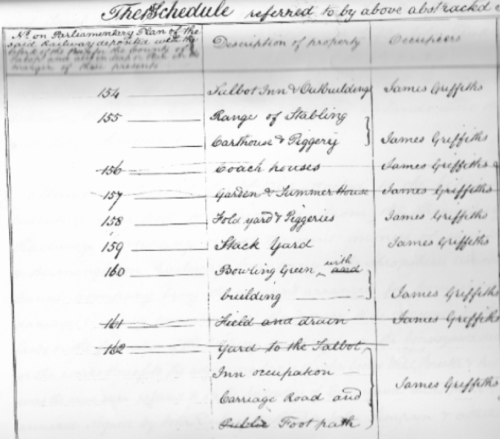 The Schedule referred to by above abstracted
No. on Parliamentary Plan of the
said Railway deposited with the
Clerk of the Peace for the County of
Salop and also in
margin of these presents
Description of property
Occupiers
154 Talbot Inn & Outbuildings James Griffiths
155 Range of Stabling
Carthouse & Piggery James Griffiths
156 Coach houses James Griffiths
157 Garden & Summer House James Griffiths
158 Fold yard & Piggeries James Griffiths
159 Stack Yard James Griffiths
160 Bowling Green with and
building James Griffiths
161 Field and drain James Griffiths
162 Yard to the Talbot
Inn occupation
Carriage Road and James Griffiths
Public Foot path